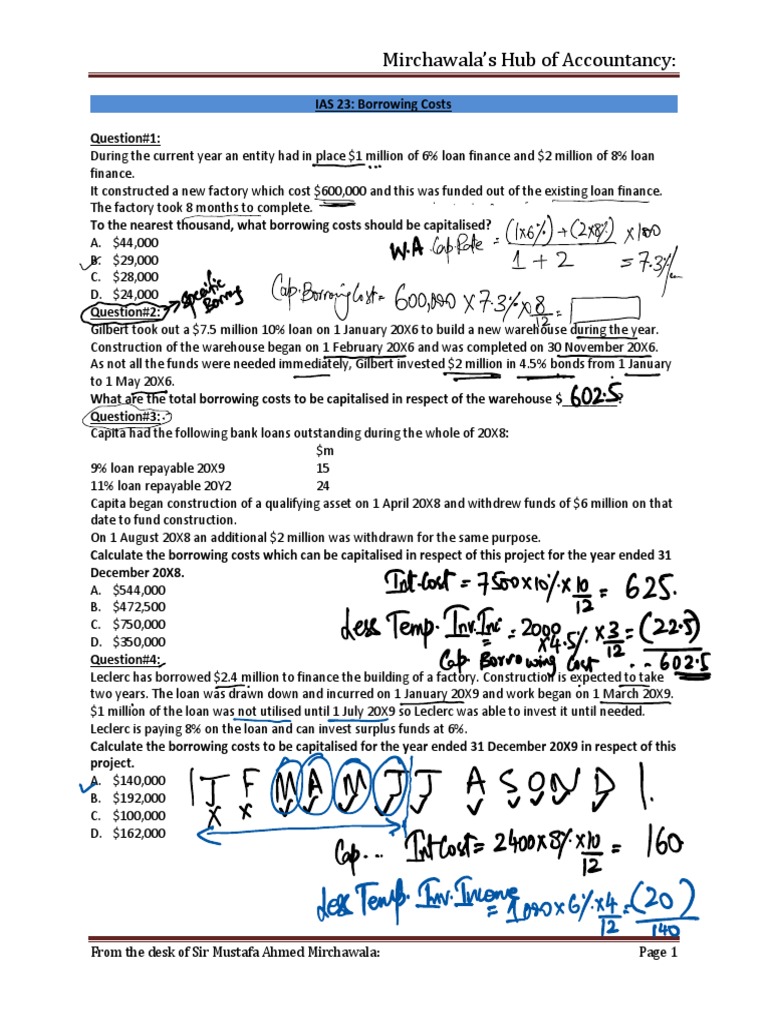 Mirchawala's Hub of Accountancy:
IAS 23: Borrowing Costs
Question#1:
During the current year an entity had in place $1 million of 6% loan finance and $2 million of 8% loan
finance.
It constructed a new factory which cost $600,000 and this was funded out of the existing loan finance.
The factory took 8 months to complete.
To the nearest thousand, what borrowing costs should be capitalised?
A. $44,000
B. $29,000
C. $28,000
D. $24,000
W.A Cap Rate = (1x6%) + (2x8%) x 100
1 + 2
= 7.3%
Cap. Borrowing Cost = 600,000 x 7.3% x 8 =
12
Question#2: → Specific
Borrowing
Gilbert took out a $7.5 million 10% loan on 1 January 20X6 to build a new warehouse during the year.
Construction of the warehouse began on 1 February 20X6 and was completed on 30 November 20X6.
As not all the funds were needed immediately, Gilbert invested $2 million in 4.5% bonds from 1 January
to 1 May 20X6.
What are the total borrowing costs to be capitalised in respect of the warehouse $ 602.5?
Question#3:
Capita had the following bank loans outstanding during the whole of 20X8:
$m
9% loan repayable 20X9 15
11% loan repayable 20Y2 24
Capita began construction of a qualifying asset on 1 April 20X8 and withdrew funds of $6 million on that
date to fund construction.
On 1 August 20X8 an additional $2 million was withdrawn for the same purpose.
Calculate the borrowing costs which can be capitalised in respect of this project for the year ended 31
December 20X8.
A. $544,000
B. $472,500
C. $750,000
D. $350,000
Int Cost = 7500x10%x 10 = 625.
12
Less Temp. Inv. Inc = 2000 x 4.5% x 3 = (22.5)
12
Cap Borrowing Cost .. 602.5
Question#4:
Leclerc has borrowed $2.4 million to finance the building of a factory. Construction is expected to take
two years. The loan was drawn down and incurred on 1 January 20X9 and work began on 1 March 20X9.
$1 million of the loan was not utilised until 1 July 20X9 so Leclerc was able to invest it until needed.
Leclerc is paying 8% on the loan and can invest surplus funds at 6%.
Calculate the borrowing costs to be capitalised for the year ended 31 December 20X9 in respect of this
project.
A. $140,000
B. $192,000
C. $100,000
D. $162,000
J F M A M J J A S O N D
x x
Cap... Int Cost = 2400x8%x 10 = 160
12
Less Temp. Inv. Income = 1000x6%x 4 = (20)
12
140
From the desk of Sir Mustafa Ahmed Mirchawala: Page 1